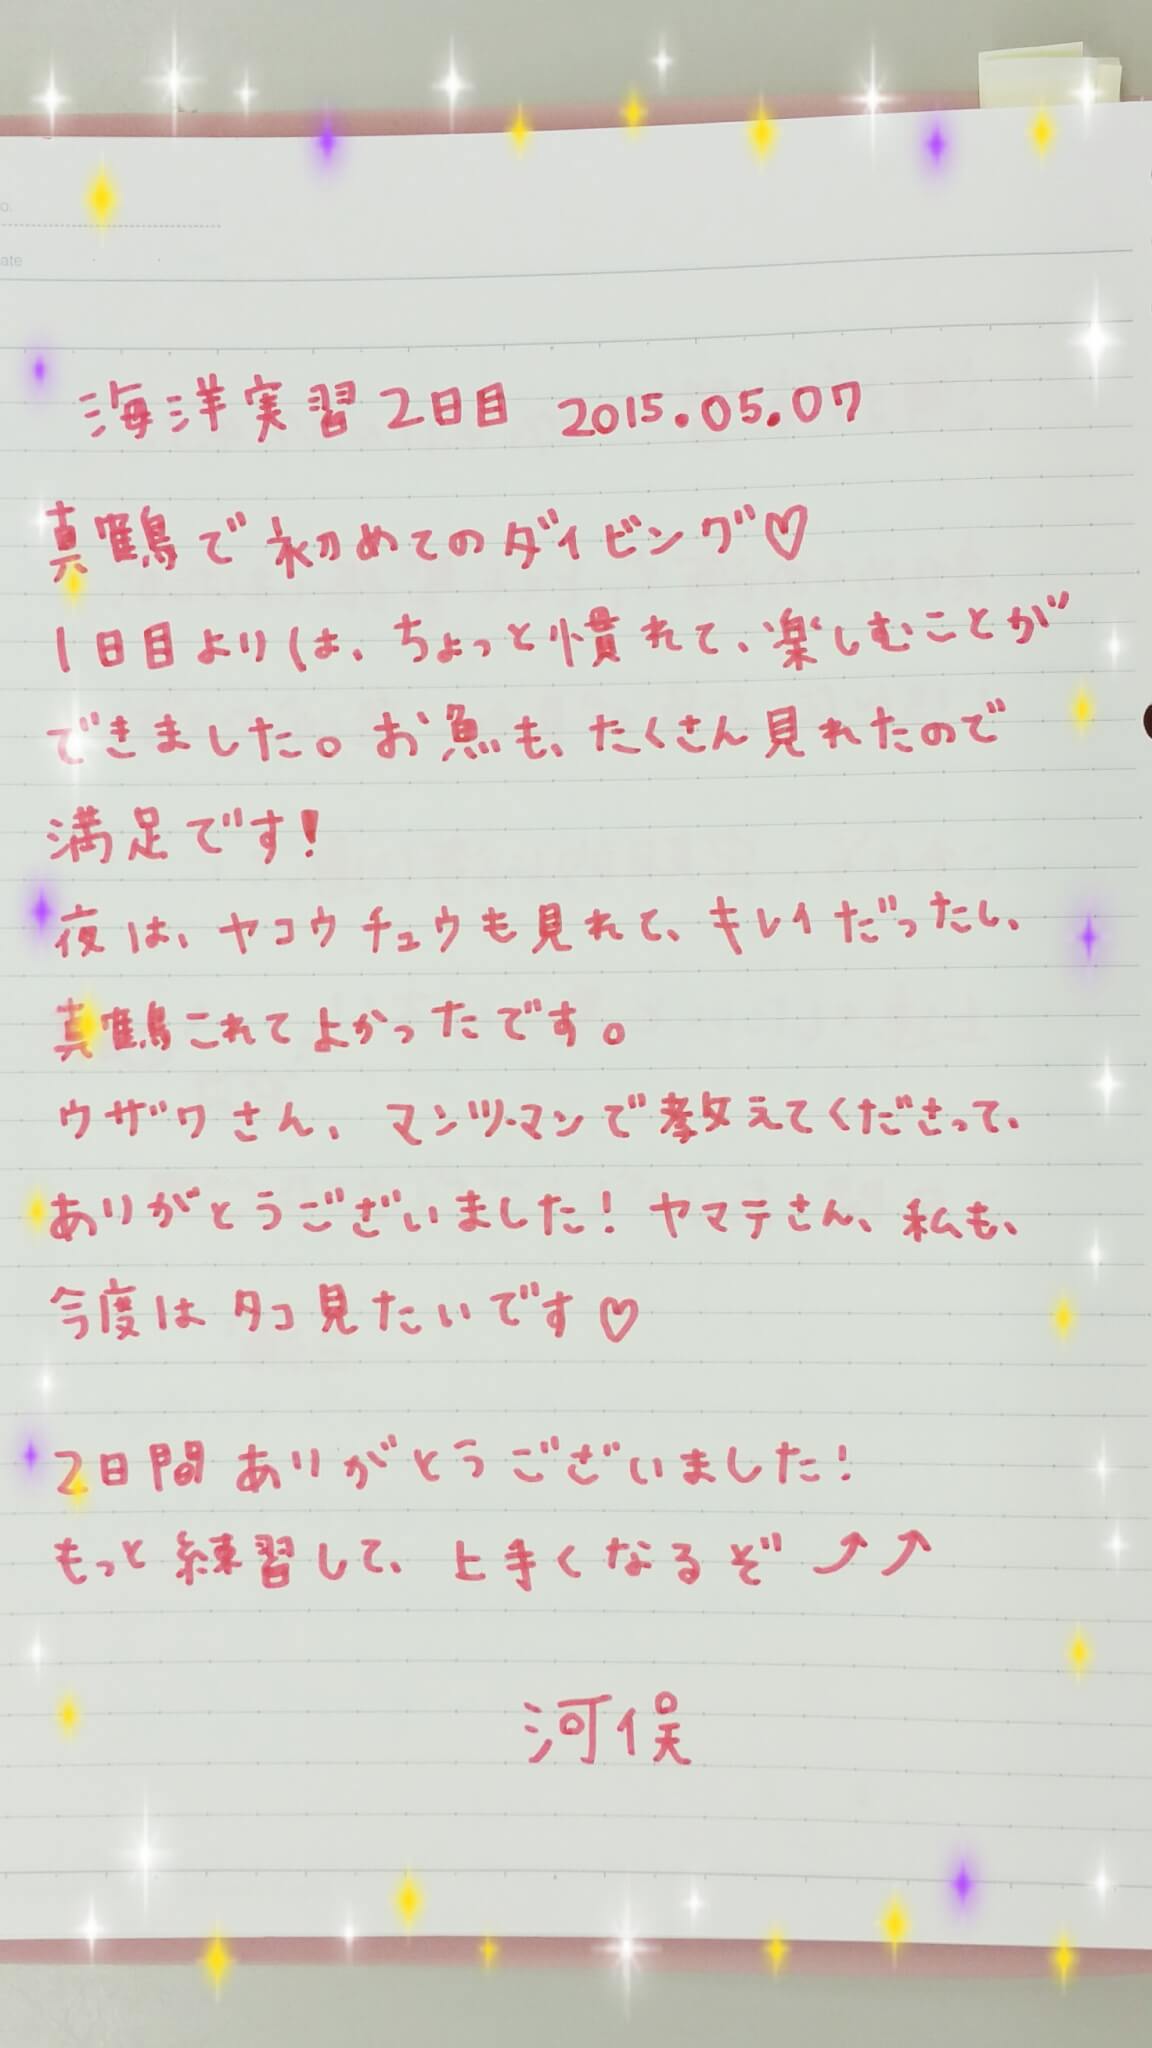 海洋実習2日目 2015.05.07
真鶴で初めてのダイビング♡
1日目よりは、ちょっと慣れて、楽しむことが
できました。お魚も、たくさん見れたので
満足です!
夜は、ヤコウチュウも見れて、キレイだったし、
真鶴これてよかったです。
ウザワさん、マンツーマンで教えてくださって、
ありがとうございました! ヤマテさん、私も、
今度はタコ見たいです♡
2日間ありがとうございました!
もっと練習して、上手くなるぞ⤴⤴
河俣